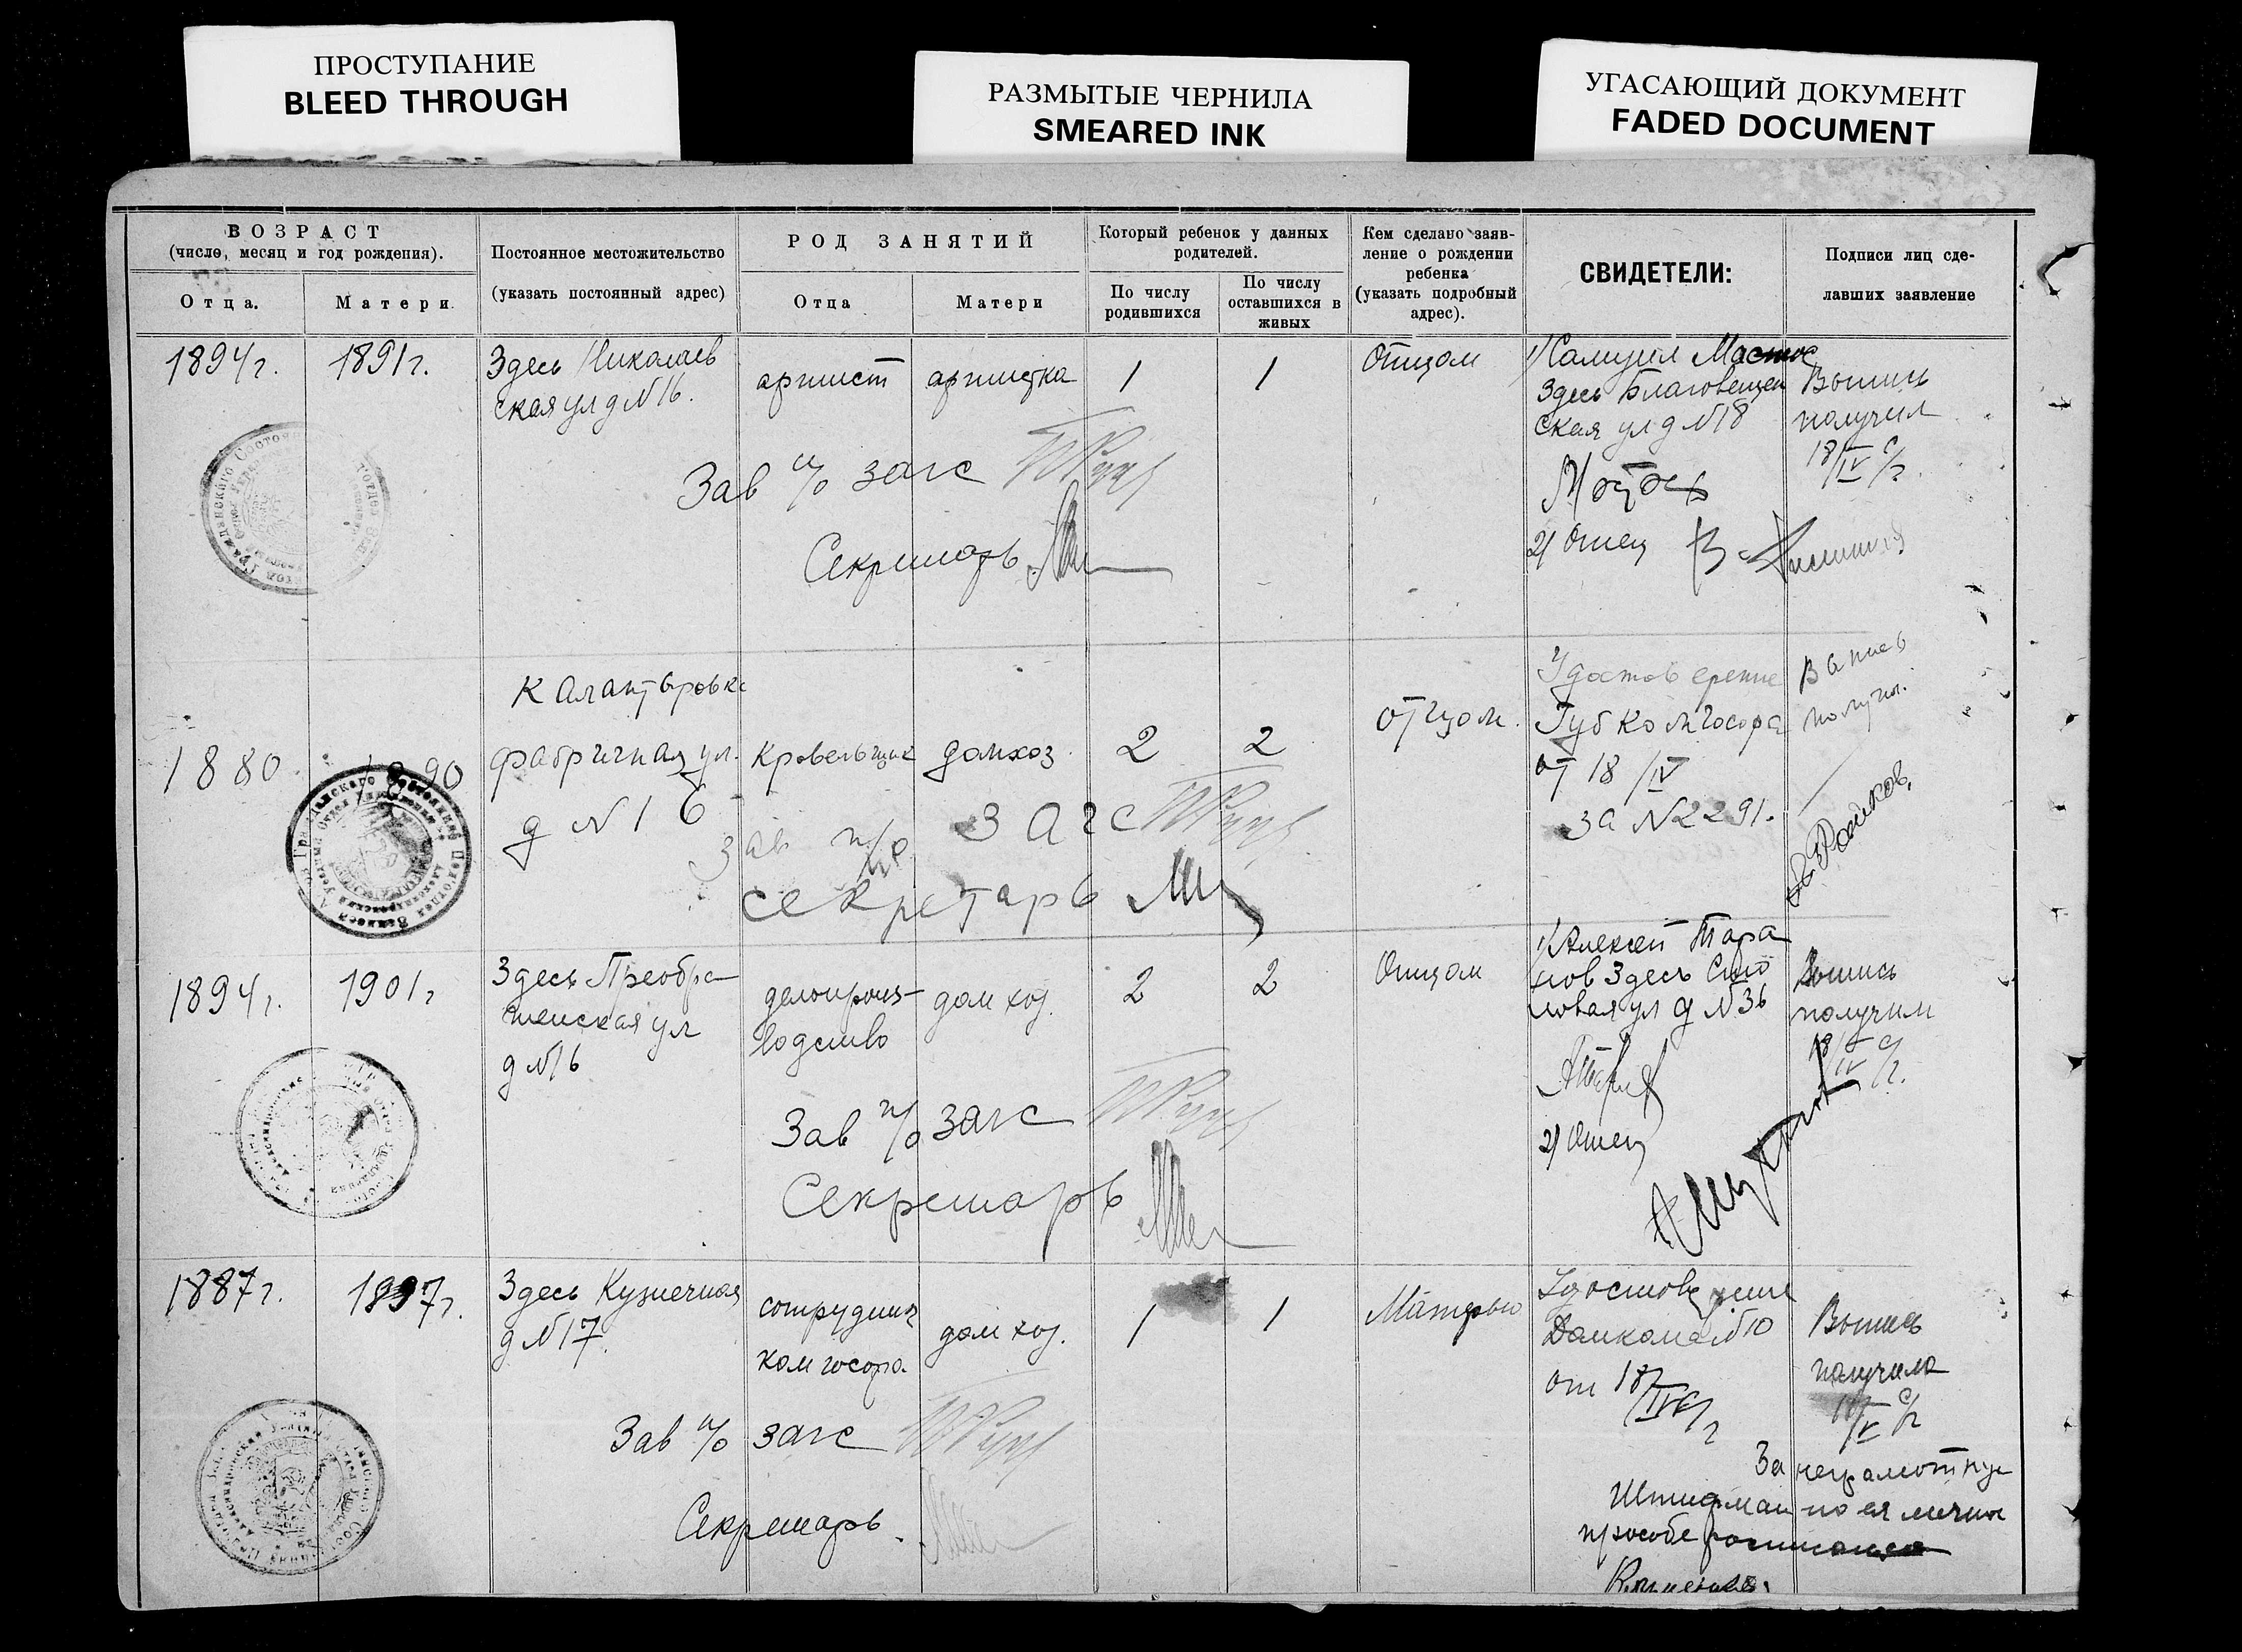 ПРОСТУПАНИЕ
BLEED THROUGH
РАЗМЫТЫЕ ЧЕРНИЛА
SMEARED INK
УГАСАЮЩИЙ ДОКУМЕНТ
FADED DOCUMENT
ВОЗРАСТ
(число, месяц и год рождения).
Отца.
Матери.
Постоянное местожительство
(указать постоянный адрес)
РОД ЗАНЯТИЙ
Отца
Матери
Который ребенок у данных
родителей.
По числу
родившихся
По числу
оставшихся в
живых
Кем сделано заяв-
ление о рождении
ребенка
(указать подробный
адрес).
СВИДЕТЕЛИ:
Подписи лиц сде-
лавших заявление
1894г.
1891г.
Здесь Николаев
ская ул д №16.
артист
артистка
1
1
Отцом
1) Самуил
Здесь Благовещен
ская ул д №18
2) Отец
Выпись
получил
18/IV с/г.
Зав п/о загс
Секретарь
1880.
1890
Калантыровка
фабричная ул.
д №16
кровельщик
домхоз.
2
2
отцом.
Удостоверение
Губкомгосора
от 18/IV
за №2291.
Выпись
получил.
Зав п/о загс
секретарь
1894г.
1901г
Здесь Преобра
женская ул
д №16
делопроиз-
водство
дом хоз.
2
2
Отцом
1) Алексей Тара
нов Здесь Сто
ловая ул д №36
2) Отец
Выпись
получил
18/IV с/г.
Зав п/о загс
Секретарь
1887г.
1897г.
Здесь Кузнечная
д №17.
сотрудник
комгосора.
дом хоз.
1
1
Матерью
Удостоверение
Домкома №10
от 18/IV с/г
Выпись
получила
18/IV с/г
За неграмотную
по ея личной
просьбе
Зав п/о загс
Секретарь.